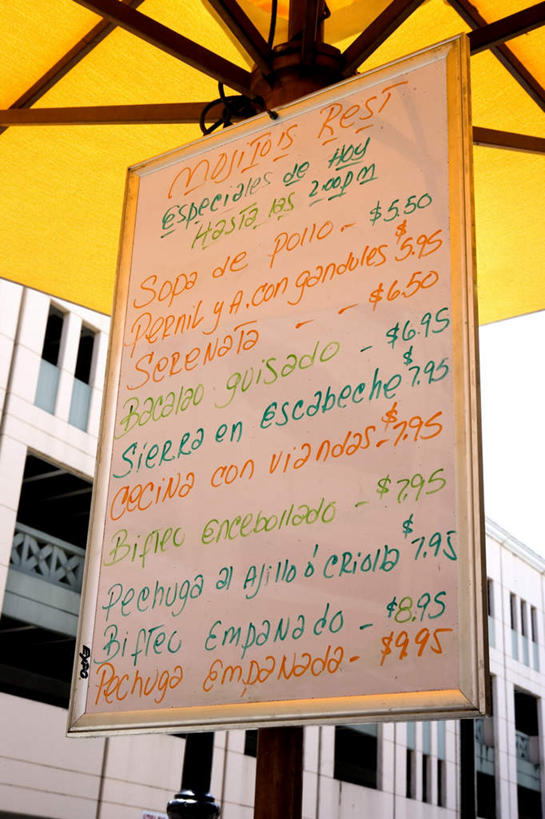 Mojito's Rest
Especiales de Hoy
Hasta las 2:00pm
Sopa de pollo - $5.50
Pernil y A. con gandules $5.95
Serenata - - $6.50
Bacalao guisado - $6.95
Sierra en Escabeche $7.95
Cecina con viandas - $7.95
Biftec Encebollado - $7.95
Pechuga al Ajillo ó Criolla $7.95
Biftec Empanado - $8.95
Pechuga Empanada - $9.95